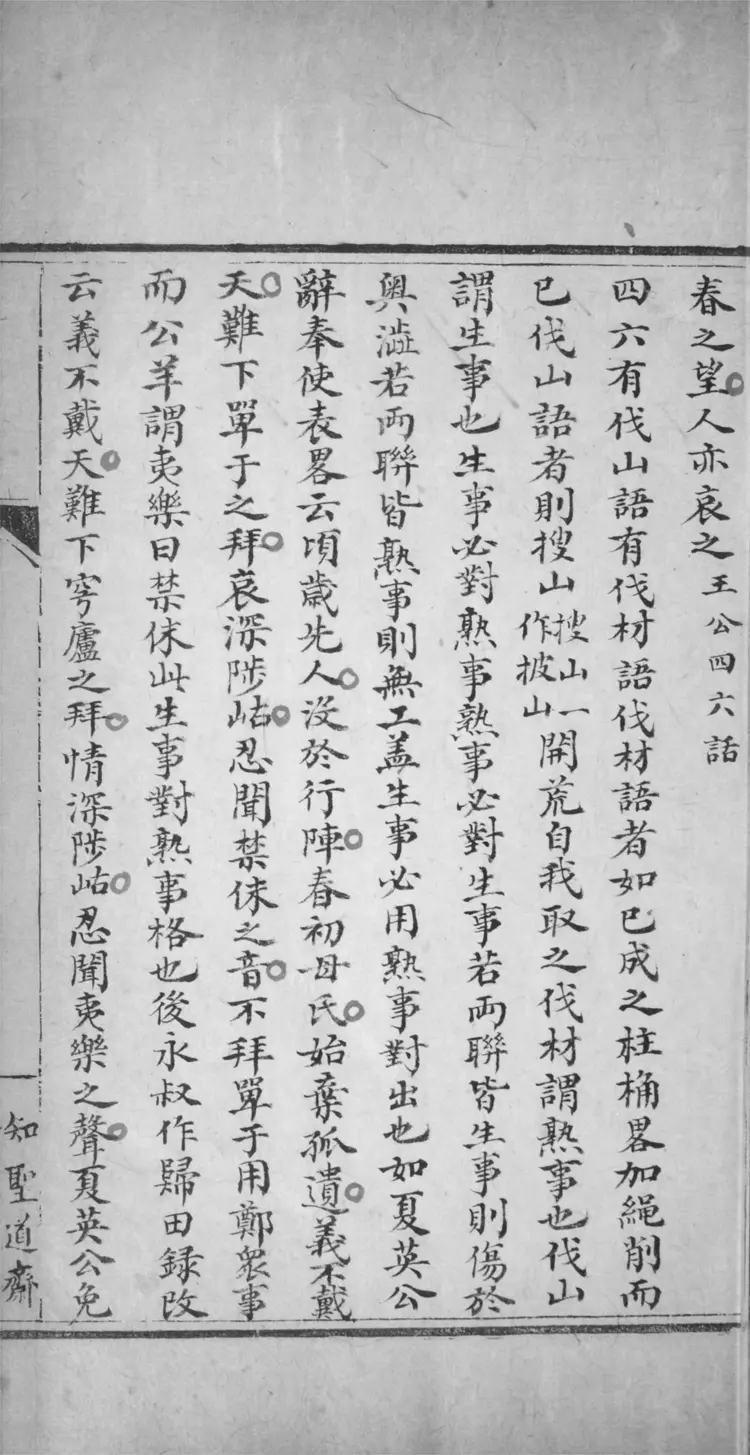 春之望人亦哀之王公四六話
四六有伐山語有伐材語伐材語者如已成之柱桷畧加繩削而
已伐山語者則搜山搜山一作披山開荒自我取之伐材謂熟事也伐山
謂生事也生事必對熟事熟事必對生事若兩聯皆生事則傷於
奥澁若兩聯皆熟事則無工盖生事必用熟事對出也如夏英公
辭奉使表畧云頃歲先人沒於行陣春初母氏始棄孤遺義不戴
天難下單于之拜哀深陟岵忍聞禁佅之音不拜單于用鄭衆事
而公羊謂夷樂曰禁佅此生事對熟事格也後永叔作歸田録改
云義不戴天難下穹廬之拜情深陟岵忍聞夷樂之聲夏英公免
知聖道齋